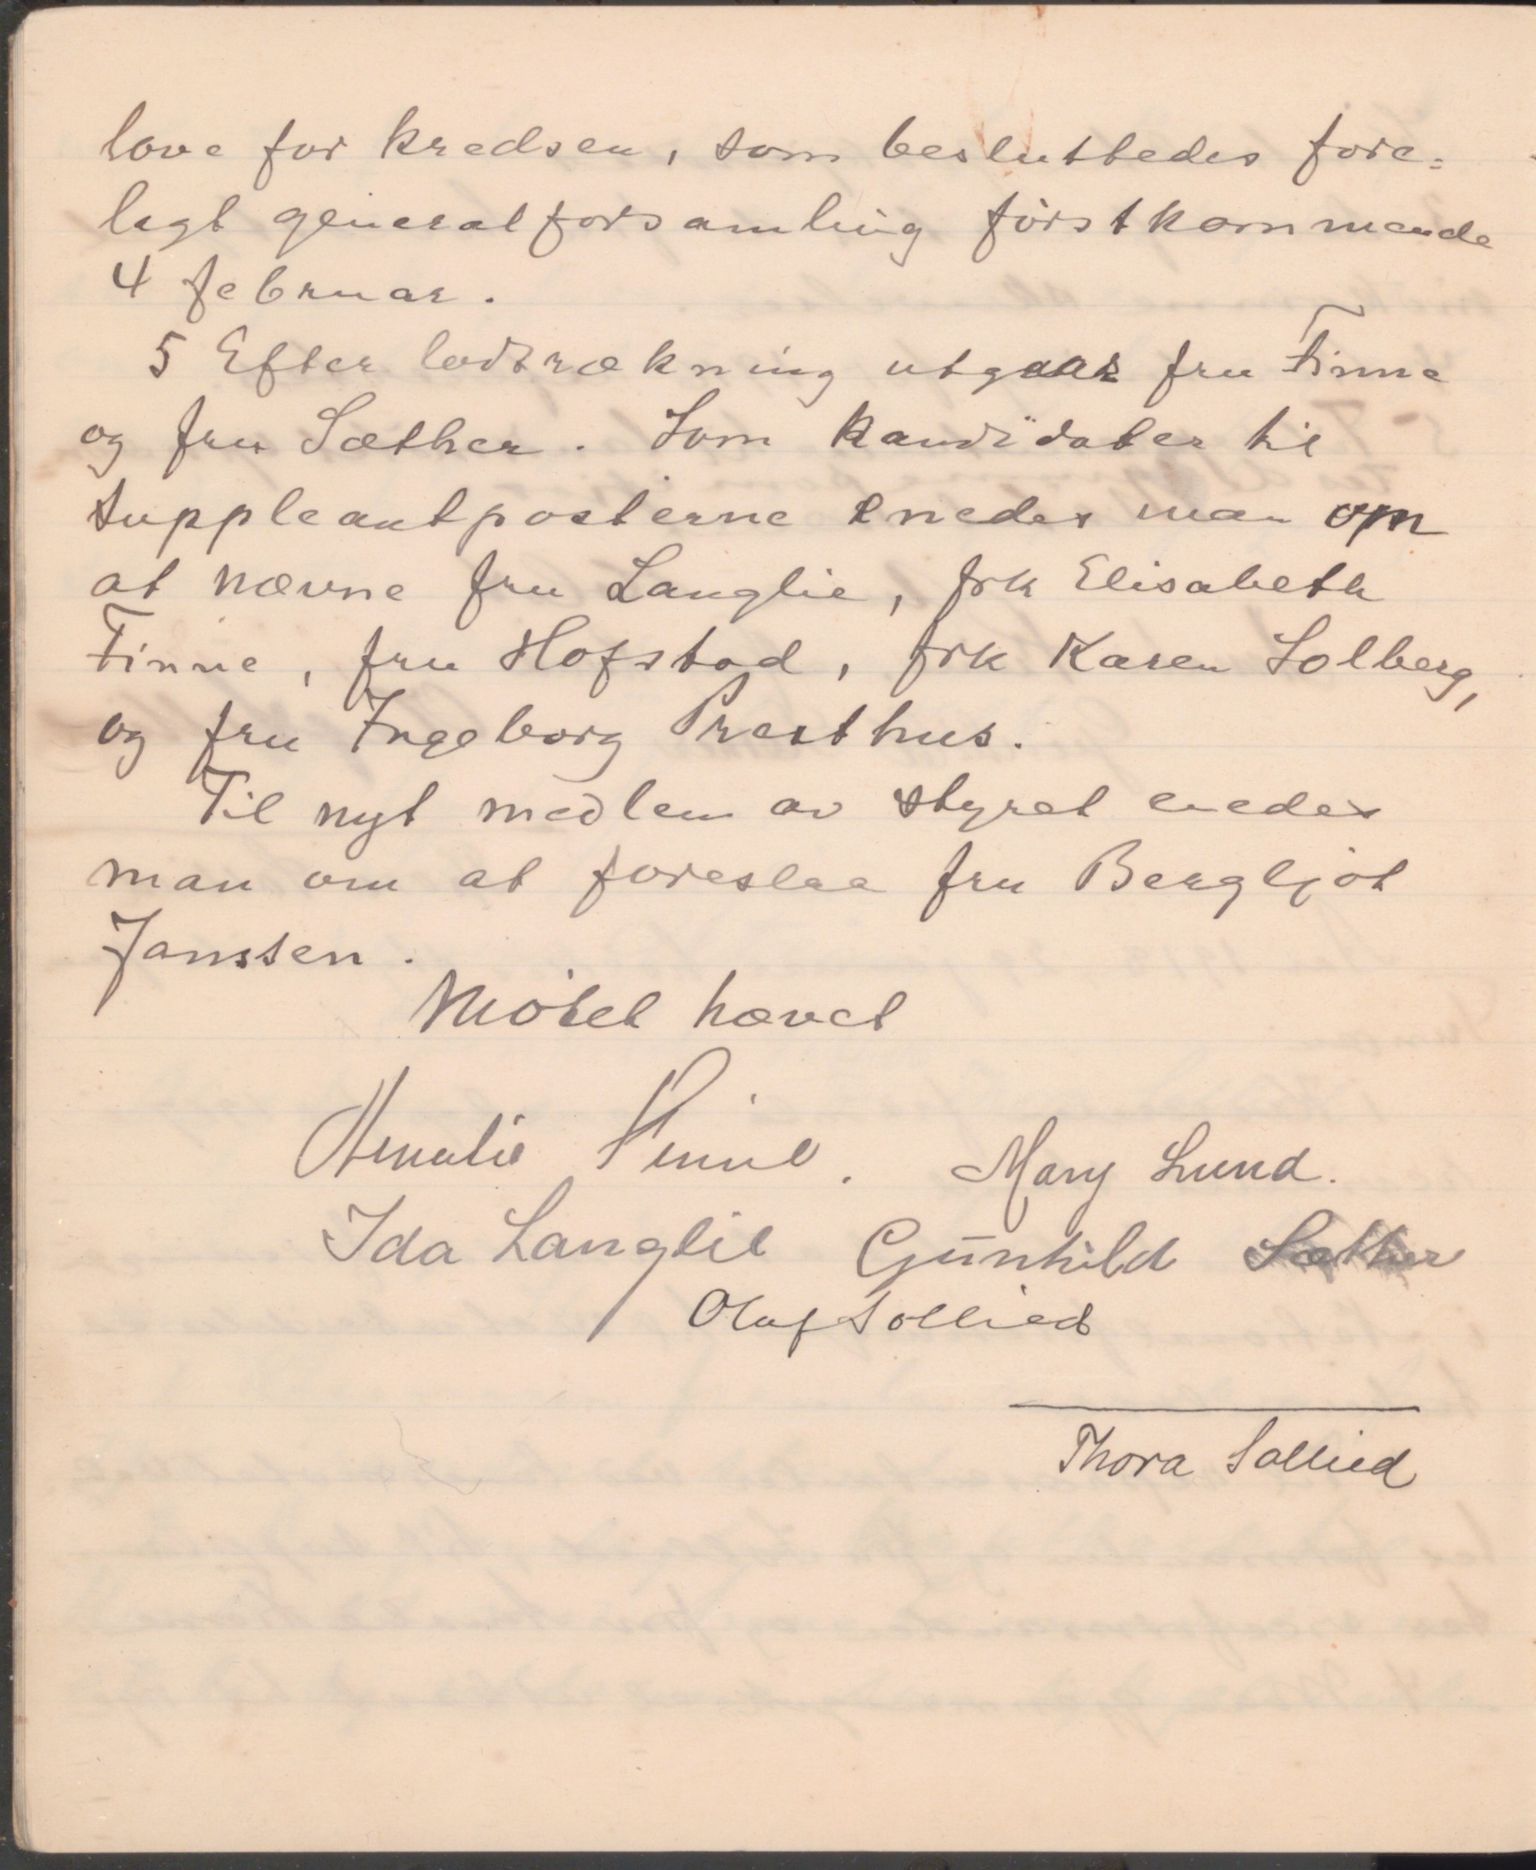 love for kredsen, som besluttedes fore=
lagt generalforsamling førstkommende
4 februar.
5 Efter lodtrækning utgaar fru Finne
og fru Sæther. Som kandidater til
suppleantposterne enedes man om
at nævne fru Langlie, frk Elisabeth
Finne, fru Hofstad, frk Karen Solberg,
og fru Ingeborg Presthus.
Til nyt medlem av styret enedes
man om at foreslaa fru Bergljot
Janssen.
Møtet hævet
Amalie Finne. Mary Lund.
Ida Langlie Gunhild Sæther
Olaf Sollied
Thora Sollied